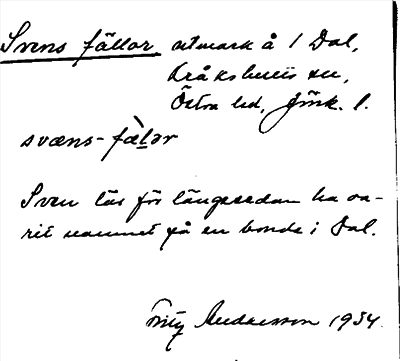 Svens fällor utmark å 1 Dal,
Kråkshults sn,
Östra hd, Jönk. l.
svæns-fæ̀lər
Sven lär för längesedan ha va-
rit namnet på en bonde i Dal.
Andersson 1934.